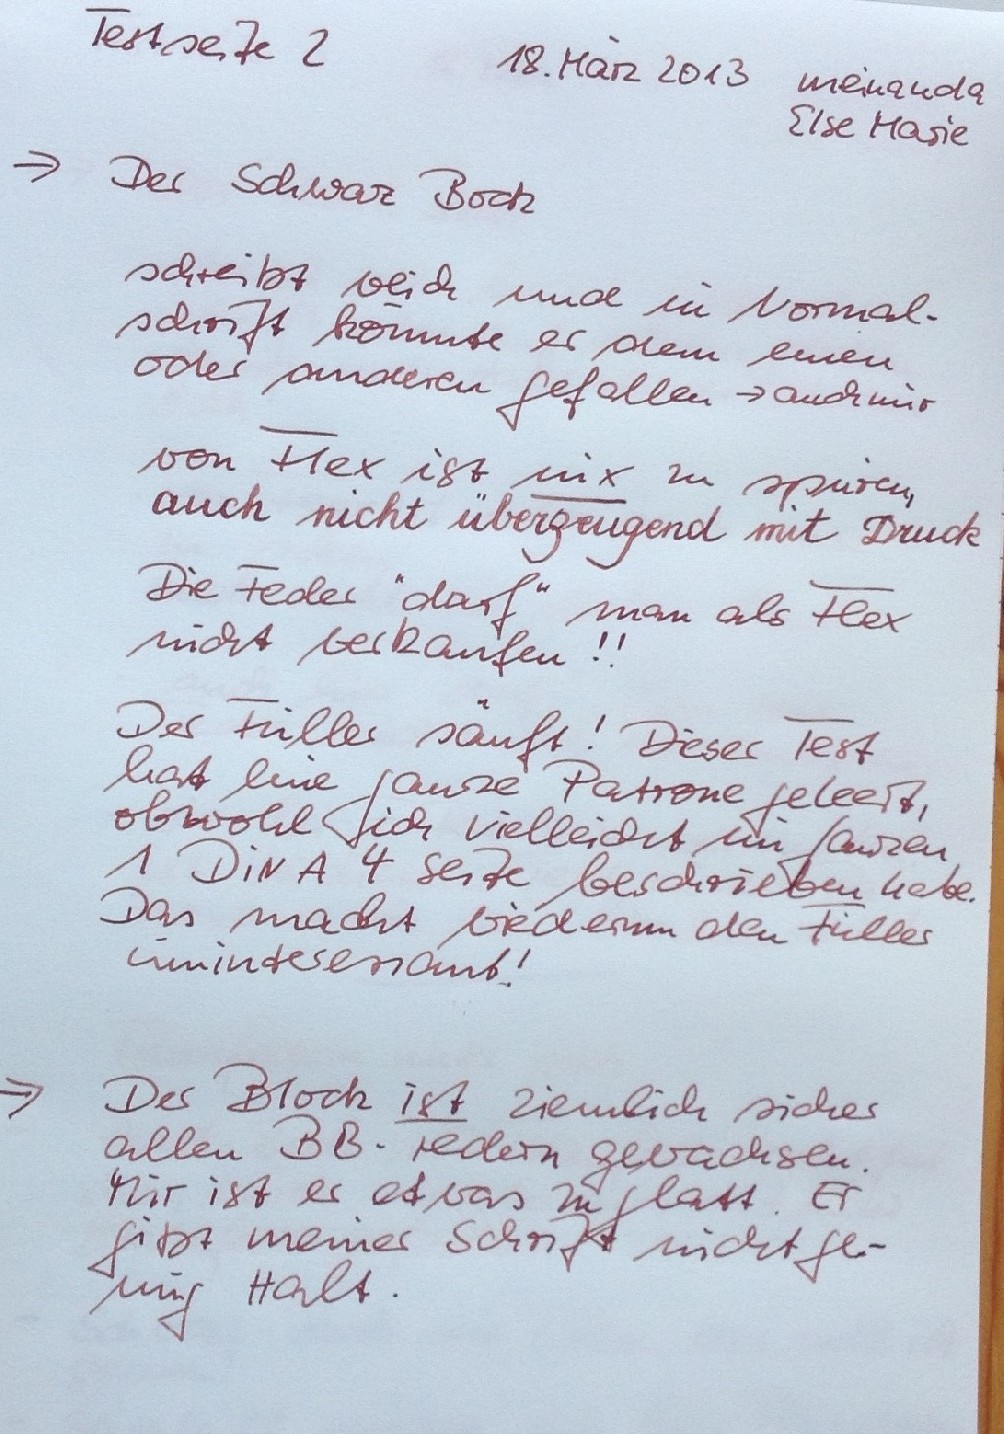 Testseite 2
18. März 2013
meinanda
Else Marie
→ Der Schwarz Bock
schreibt weich und in Normal-
schrift könnte er dem einen
oder anderen gefallen → auch mir
von Flex ist nix zu spüren,
auch nicht überzeugend mit Druck
Die Feder "darf" man als Flex
nicht verkaufen!!
Der Füller säuft! Dieser Test
hat eine ganze Patrone geleert,
obwohl ich vielleicht im ganzen
1 DIN A 4 Seite beschrieben habe.
Das macht wiederum den Füller
uninteressant!
→ Der Block ist ziemlich sicher
allen BB-Federn gewachsen.
Mir ist er etwas zu glatt. Er
gibt meiner Schrift nicht ge-
nug Halt.